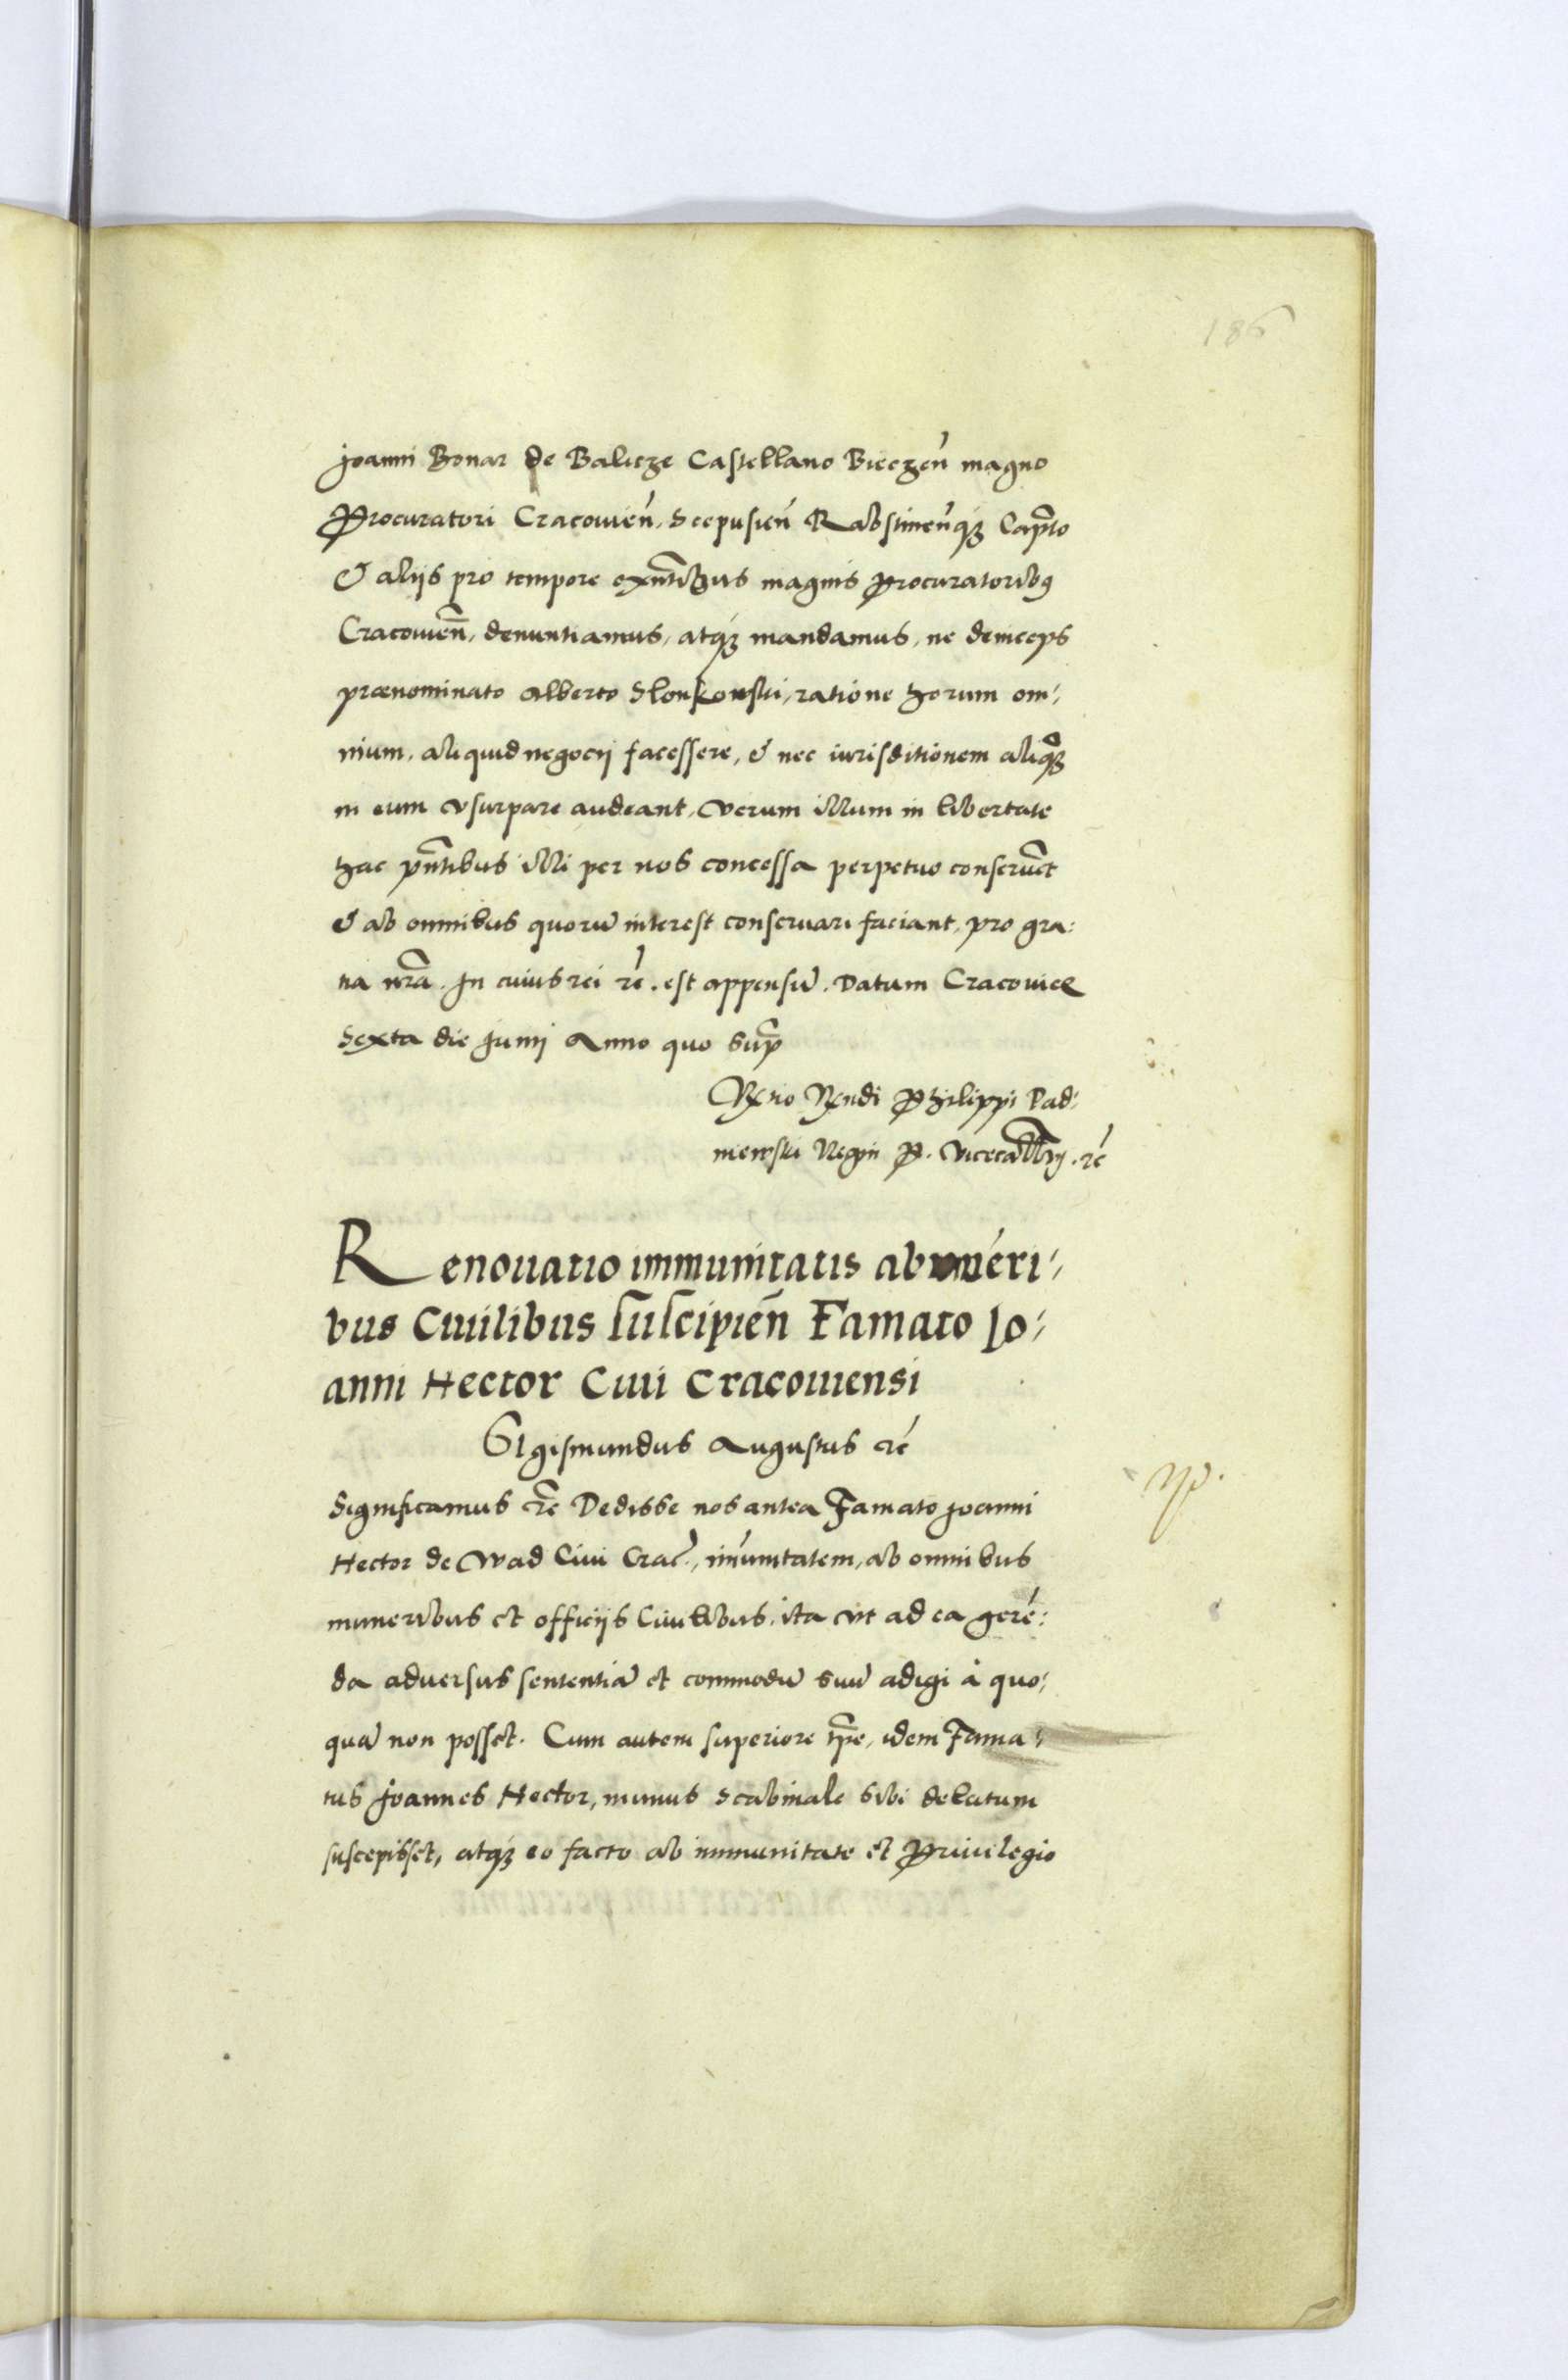 186
Joanni Bonar de Balicze Castellano Bieczen̄ magno
Procuratori Cracouien̄, Scepusien̄ Rabstinen̄qꝫ Capᷠto
& alijs pro tempore exn̄tibus magnis Procuratoribꝰ
Cracouien̄, denuntiamus, atqꝫ mandamus, ne deinceps
prænominato Alberto Slonkowski, ratione horum om-
nium, aliquid negocij facessere, & nec iurisditionem aliqᷓꝫ
in eum vsurpare audeant, verum illum in libertate
hac pn̄tibus illi per nos concessa perpetuo conserue͂t
& ab omnibus quorū interest conseruari faciant, pro gra-
tia nr̄a. In cuius rei rē. est appensū. Datum Cracouiæ
Sexta die Junij Anno quo sup̄
Rtio Rndi Philippi Pad-
niewski Regni P. Vicecan̄lrij. rē
Renouatio immunitatis ab muneri-
bus Ciuilibus suscipien̄ Famato Io-
anni Hector Ciui Cracouiensi
Sigismundus Augustus rē
Significamus rē Dedisse nos antea Famato Joanni
Hector de Wad Ciui Crac., im̄unitatem, ab omnibus
muneribus et officijs Ciuilibus, ita vt ad ea gerē-
da aduersus sententiā et commodū suū adigi à quo-
quā non posset. Cum autem superiore tp̄re, idem Fama-
tus Joannes Hector, munus Scabinale sibi delatum
suscepisset, atqꝫ eo facto ab immunitate et Priuilegio